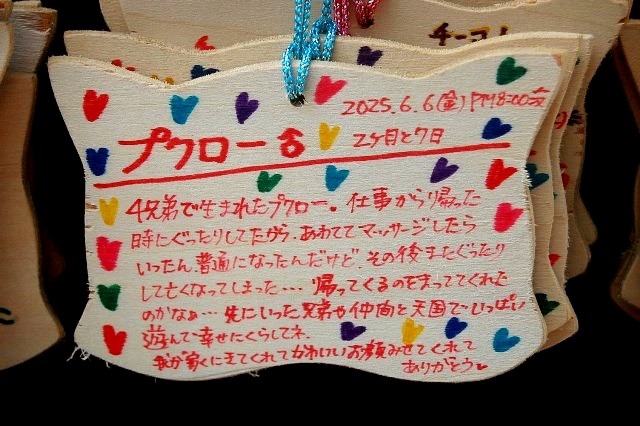 チーコ
2025.6.6(金)PM8:00頃
プクロー♂ 2ヶ月と7日
4兄弟で生まれたプクロー。仕事から帰った
時にぐったりしてたから、あわててマッサージしたら
いったん普通になったんだけど、その後またぐったり
して亡くなってしまった… 帰ってくるのをまっててくれた
のかなぁ… 先にいった兄弟や仲間と天国でいっぱい
遊んで幸せにくらしてネ。
我が家にきてくれてかわいいお顔みせてくれて
ありがとう